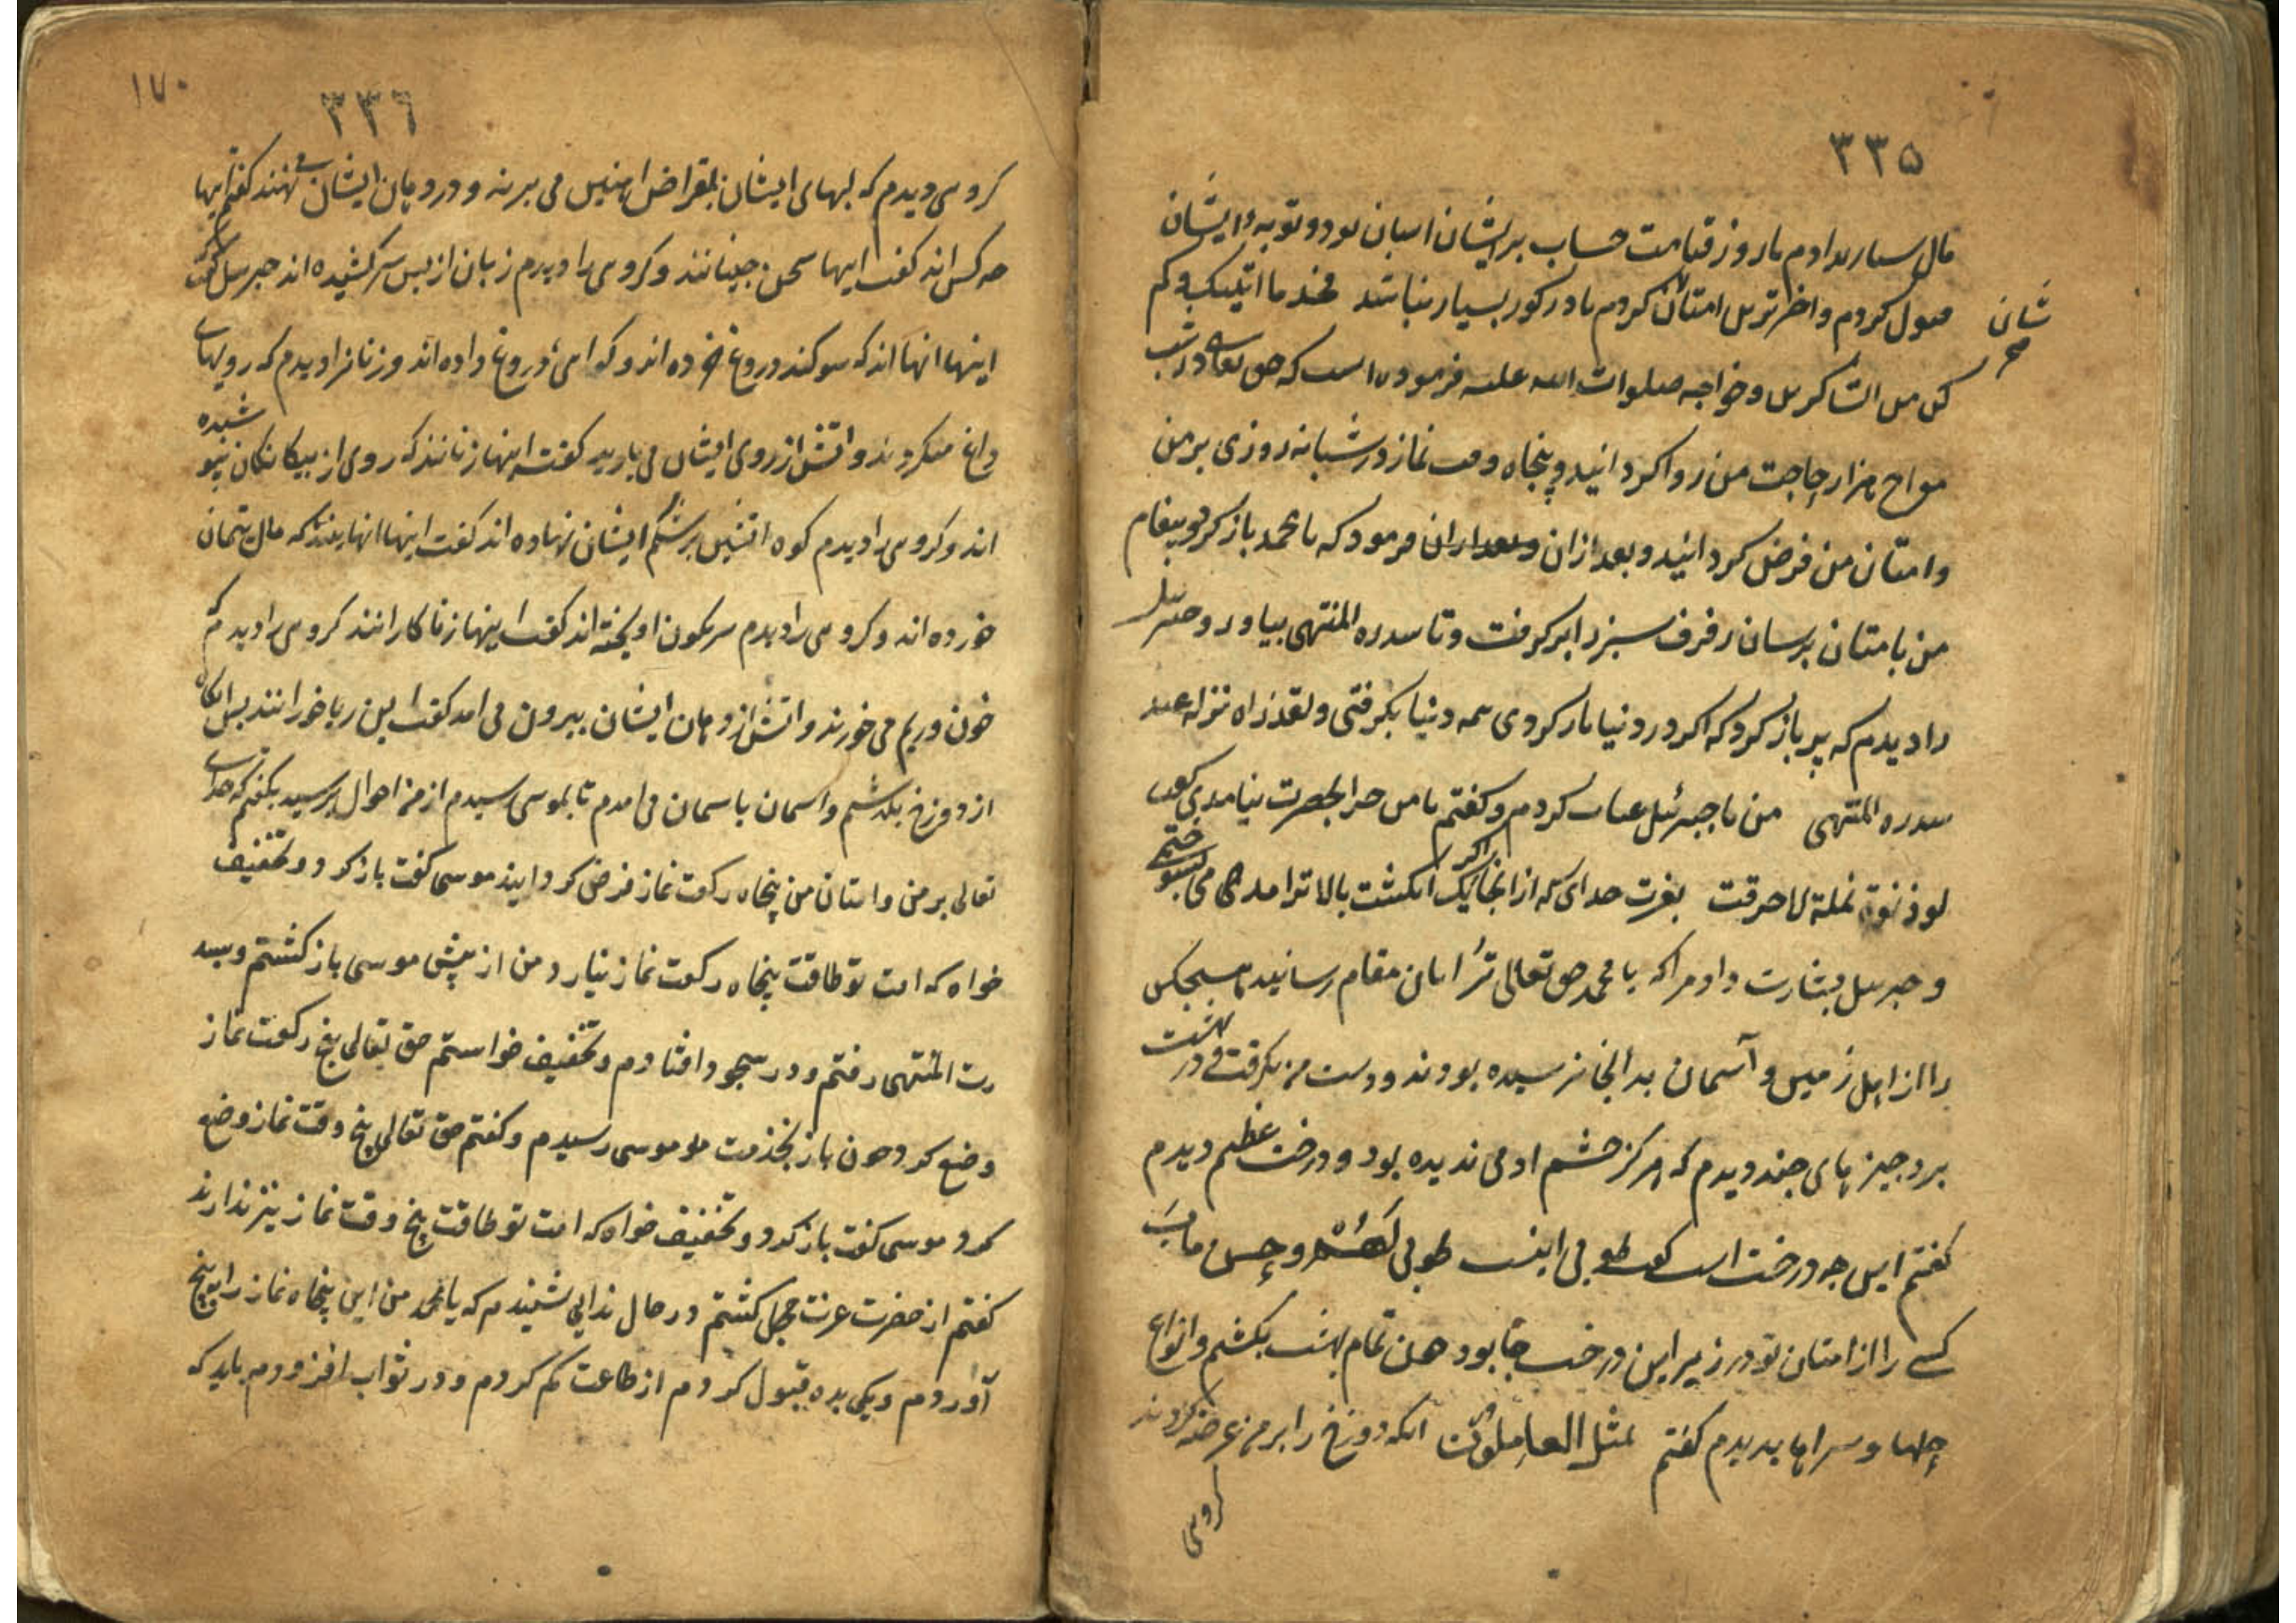 ۳۳۵
مال بسیار ندادم تا روز قیامت حساب بر ایشان اسان بود و توبهٔ ایشان
قبول کردم و اخرترین امتان کردم تا در کور بسیار نباشند فخذ ما اتیتک و کم
شان صح
کن من الشاکرین و خواجه صلوات الله علیه فرموده است که حق تعالی در شب
معراج هزار حاجت من روا کردانید و پنجاه وقت نماز در شبانه روزی بر من
و امتان من فرض کردانید و بعد ازان و بعد ازان فرمود که یا محمد باز کرد و پیغام
من بامتان برسان رفرف سبز را بر کرفت و تا سدره المنتهی بیاورد و جبریل
را دیدم که پر باز کرد که اکر در دنیا باز کردی همه دنیا بکرفتی و لقد راه نزله عند
سدره المنتهی من با جبرئیل عتاب کردم و کفتم با من چرا بحضرت نیامدی کفت
لو دنوت نملة لاحرقت بعزت خدای که از انجا اکر یک انکشت بالاتر امدمی می بسوختمی
و جبریل بشارت داد مرا که یا محمد حق تعالی ترا بدان مقام رسانید که هیچکس
را از اهل زمین و آسمان بدانجا نرسیده بودند و دست من بکرفت و در بهشت
برد چیزهای چند دیدم که هرکز چشم ادمی ندیده بود و درخت عظیم دیدم
کفتم این چه درخت است کفت طوبی اینست طوبی لَهُمْ و حسن مآب
کسی را از امتان تو در زیر این درخت جا بود همن تمام بهشت بکشتم و انواع
جلها و سراها بدیدم کفتم لمثل العاملون انکه دوزخ را بر من عرضه کردند
کروهی
۱۷۰
۳۳٦
کروهی دیدم که لبهای ایشان بمقراض اهنین می بریدند و در دهان ایشان می نهند کفتم اینها
چه کس اند کفت اینها سخن چینانند و کروهی را دیدم زبان از پس سر کشیده اند جبریل کفت
اینها انها اند که سوکند دروغ خورده اند و کواهی دروغ داده اند و زنانرا دیدم که رویهای
داغ میکردند و اتش از روی ایشان می بارید کفت اینها زنانند که روی از بیکانکان نپوشیده
اند و کروهی را دیدم کوه اتشین بر شکم ایشان نهاده اند کفت اینها انهایند که مال یتیمان
خورده اند و کروهی را دیدم سرنکون اویخته اند کفت اینها زناکارانند کروهی را دیدم که
خون و ریم می خورند و اتش از دهان ایشان بیرون می امد کفت این رباخورانند پس انکاه
از دوزخ بکذشتم و اسمان باسمان می امدم تا بموسی رسیدم از من احوال پرسید بکفتم که خدای
تعالی بر من و امتان من پنجاه رکعت نماز فرض کردانید موسی کفت باز کرد و تخفیف
خواه که امت تو طاقت پنجاه رکعت نماز نیارد من از پیش موسی باز کشتم و بسد
رت المنتهی رفتم و در سجود افتادم و تخفیف خواستم حق تعالی پنج رکعت نماز
وضع کرد چون باز بخدمت مو موسی رسیدم و کفتم حق تعالی پنج وقت نماز وضع
کرد موسی کفت باز کرد و تخفیف خواه که امت تو طاقت پنج وقت نماز نیز ندارند
کفتم از حضرت عزت خجل کشتم در حال ندایی شنیدم که یا محمد من این پنجاه نماز را بپنج
آوردم و یکی بده قبول کردم از طاعت کم کردم و در ثواب افزودم باید که